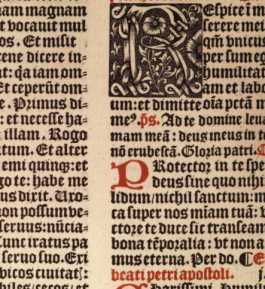 nam magnam
t vocauit mul
os. Et misit
cene dicere in-
nt: q̃a iam om-
t ceperũt om-
e. Primus di-
: et necesse ha-
illam. Rogo
tum. Et alter
emi quinq: et
go te: habe me
us dixit. Uxo-
on possum ve-
seruus: nũcia-
unc iratus pa
seruo suo. Exi
vicos ciuitat:
Respice i m
serere mei
qm̃ vnicus
per sum eg
humilitat
am et labo
um: et dimitte oĩa pctã m
me⁹. ps. Ad te domine leua
mam meã: deus meus in te
nõ erubescã. Gloria patri.
Protector in te spe
deus sine quo nihil
lidum/nichil sanctum: m
ca super nos miam tuã: v
ctore te duce sic transeam
bona tẽporalia: vt non a
mus eterna. Per do. E
beati petri apostoli.